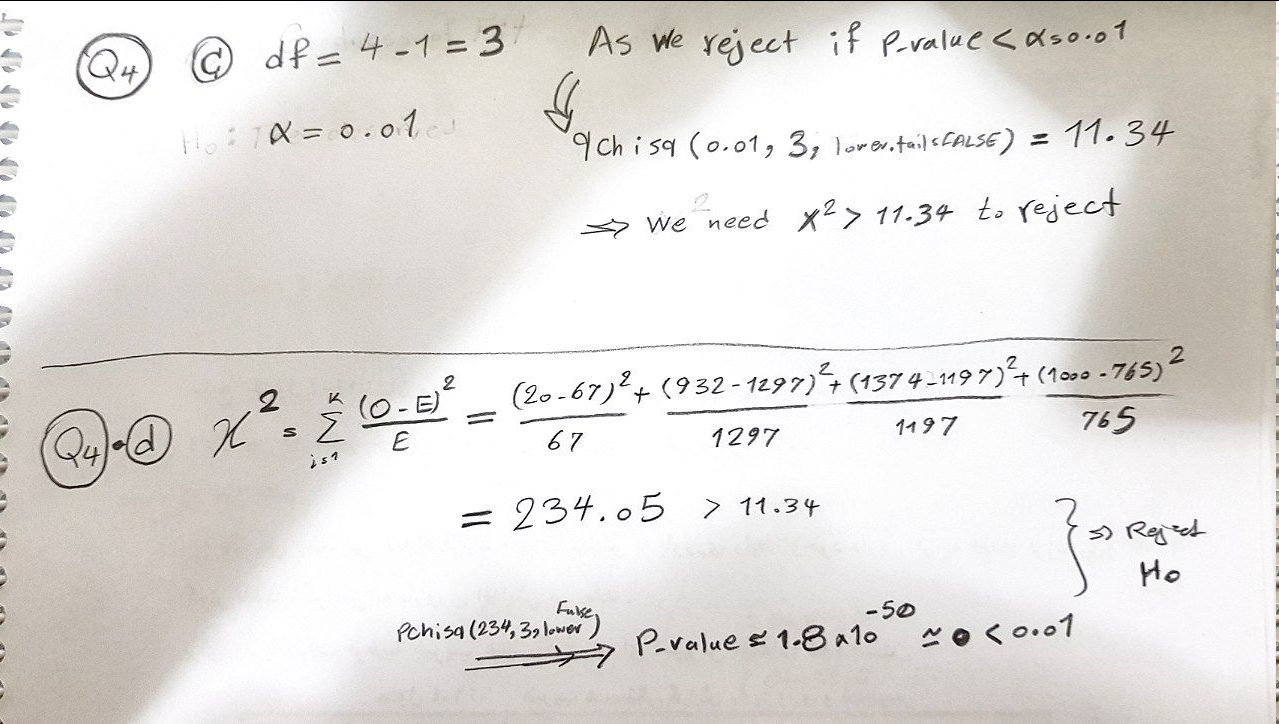 Q4 C df = 4 - 1 = 3 As we reject if P-value < α = 0.01
Ho: α = 0.01
qchisq (0.01, 3, lower.tail=FALSE) = 11.34
⇒ we need x² > 11.34 to reject
Q4.d χ² = Σ_{i=1}^{K} (O-E)²/E = (20-67)²/67 + (932-1297)²/1297 + (1374-1197)²/1197 + (1000-765)²/765
= 234.05 > 11.34
} ⇒ Reject Ho
Pchisq(234, 3, lower False) ⇒ P-value ≈ 1.8 x 10^-50 ≃ 0 < 0.01